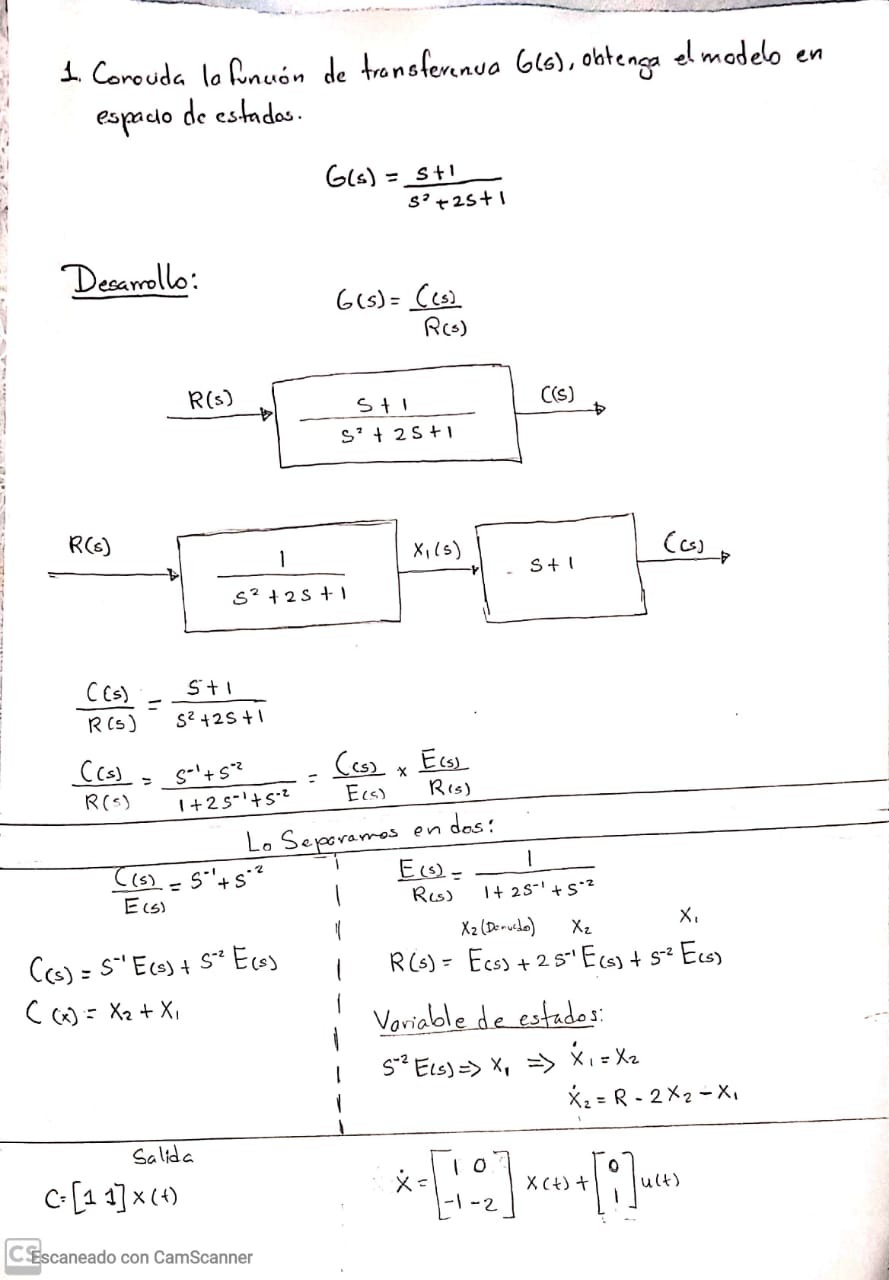 1. Conocida la función de transferencia G(s), obtenga el modelo en
espacio de estados.
G(s) = s+1 / s² + 2s + 1
Desarrollo:
G(s) = C(s) / R(s)
R(s) s+1 / s² + 2s + 1 C(s)
R(s) 1 / s² + 2s + 1 X₁(s) s+1 C(s)
C(s) / R(s) = s+1 / s² + 2s + 1
C(s) / R(s) = s⁻¹ + s⁻² / 1 + 2s⁻¹ + s⁻² = C(s) / E(s) x E(s) / R(s)
Lo Separamos en dos:
C(s) / E(s) = s⁻¹ + s⁻²
C(s) = s⁻¹ E(s) + s⁻² E(s)
C(x) = X₂ + X₁
E(s) / R(s) = 1 / 1 + 2s⁻¹ + s⁻²
X₂ (Derivada) X₂ X₁
R(s) = E(s) + 2s⁻¹ E(s) + s⁻² E(s)
Variable de estados:
s⁻² E(s) => X₁ => Ẋ₁ = X₂
Ẋ₂ = R - 2X₂ - X₁
Salida
C = [1 1] x(t)
ẋ = [1 0; -1 -2] x(t) + [0; 1] u(t)
CS Escaneado con CamScanner